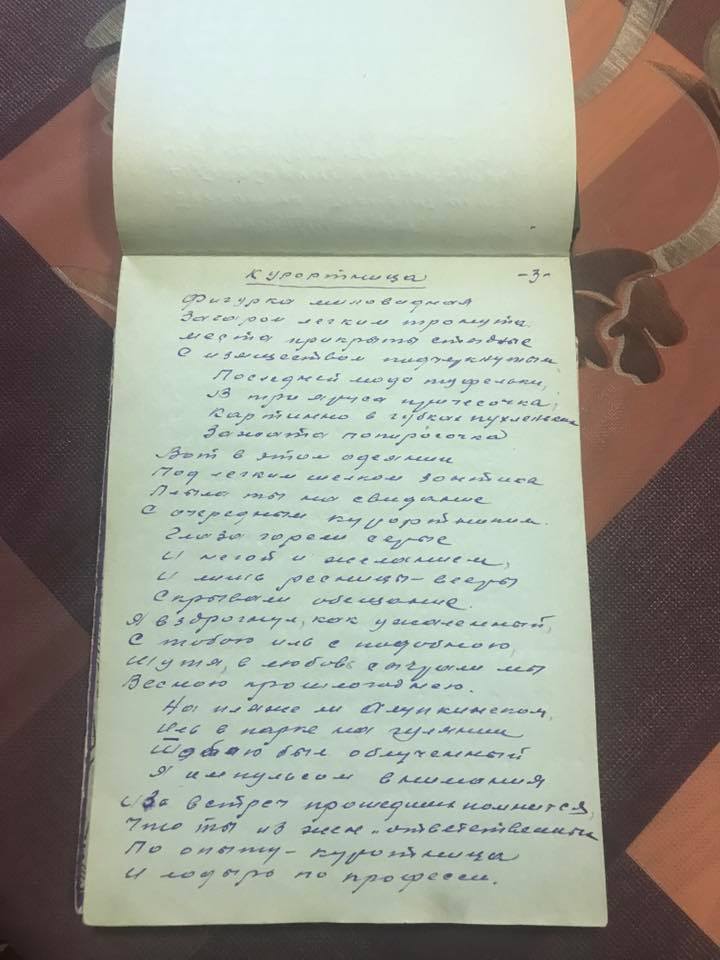 Курортница
-3-
Фигурка миловидная
Загаром легким тронута.
Места прикрыты стыдные
С изяществом подчеркнутым,
Последней моды туфельки,
В три яруса причесочка,
Картинно в губках пухленьких
Зажата папиросочка
Вот в этом одеянии
Под легким шелком зонтика
Плыла ты на свидание
С очередным курортником.
Глаза горели серые
И негой и желанием,
И лишь ресницы-вееры
Скрывали обещание.
Я вздрогнул, как ужаленный,
С тобою иль с подобною,
Шутя, в любовь сыграли мы
Весною прошлогоднею.
На пляже ли Алупкинском,
Иль в парке на гулянии
Тобою был облученный
Я импульсом внимания
Из встреч прошедших помнится,
Что ты из жен "ответственных
По опыту - куротница
И лодырь по професси.